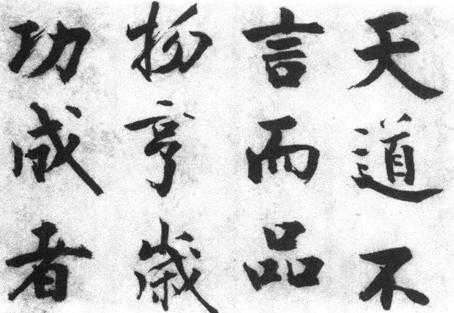 天道不
言而品
物亨歲
功成者